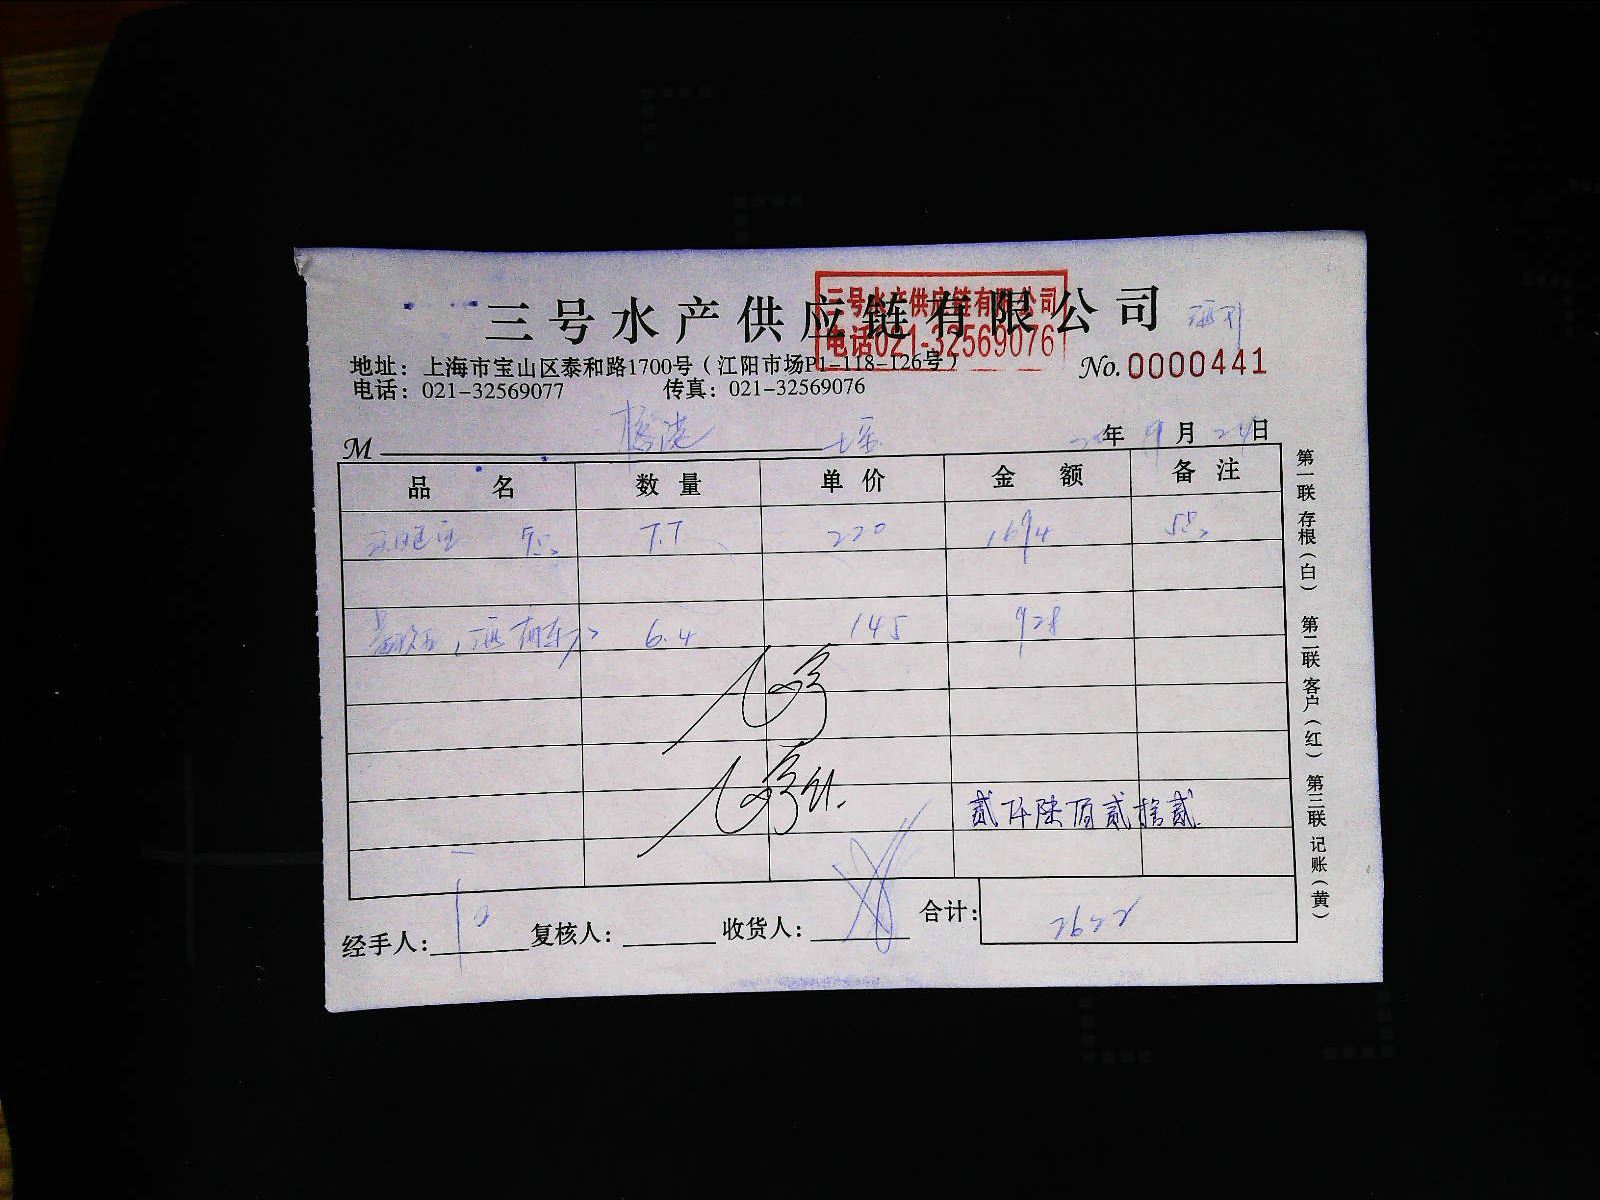 三号水产供应链有限公司
三号水产供应链有限公司
电话021-32569076
地址：上海市宝山区泰和路1700号（江阳市场P1-118-126号）
No. 0000441
电话：021-32569077 传真：021-32569076
M 年 9 月 24 日
品 名 数 量 单 价 金 额 备 注
7.7 220 1694
6.4 145 928
贰仟陆佰贰拾贰
经手人： 复核人： 收货人： 合计： 2622
第一联 存根（白） 第二联 客户（红） 第三联 记账（黄）